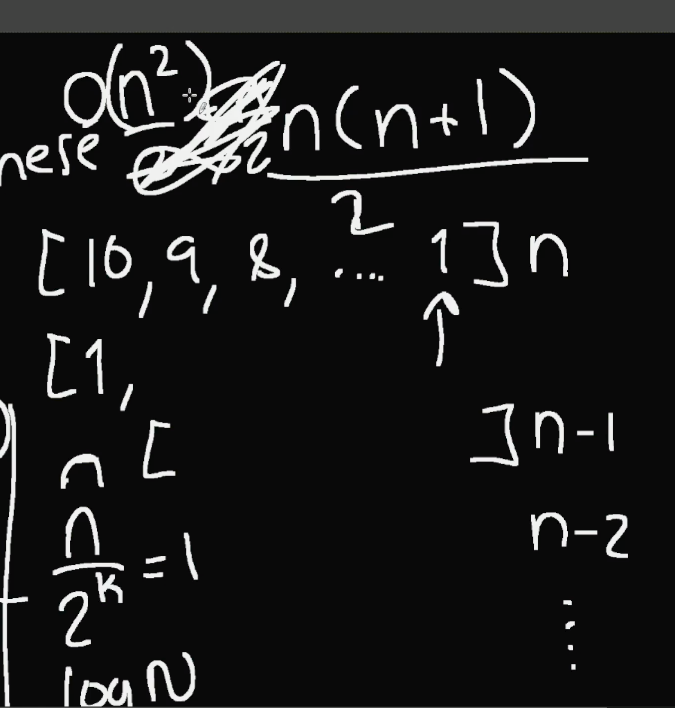 O(n²) n(n+1)
2
[10, 9, 8, .... 1] n
[1,
[ ] n-1
n
n-2
n/2^k = 1
log N